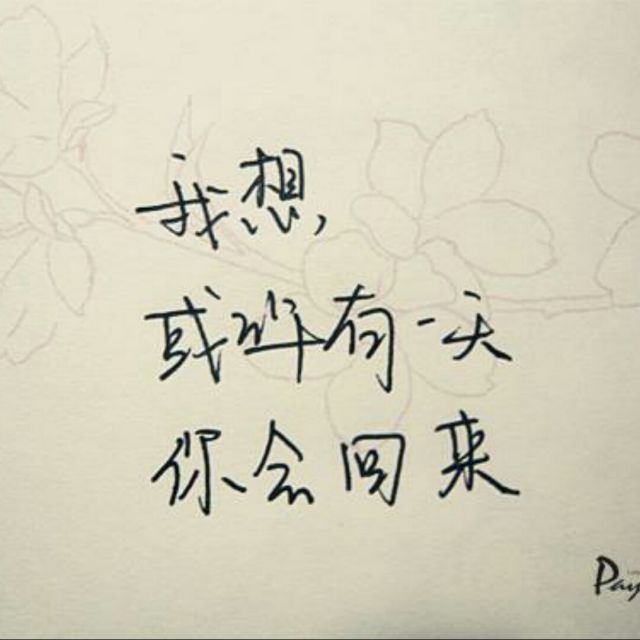 我想,
或许有一天
你会回来
Pay